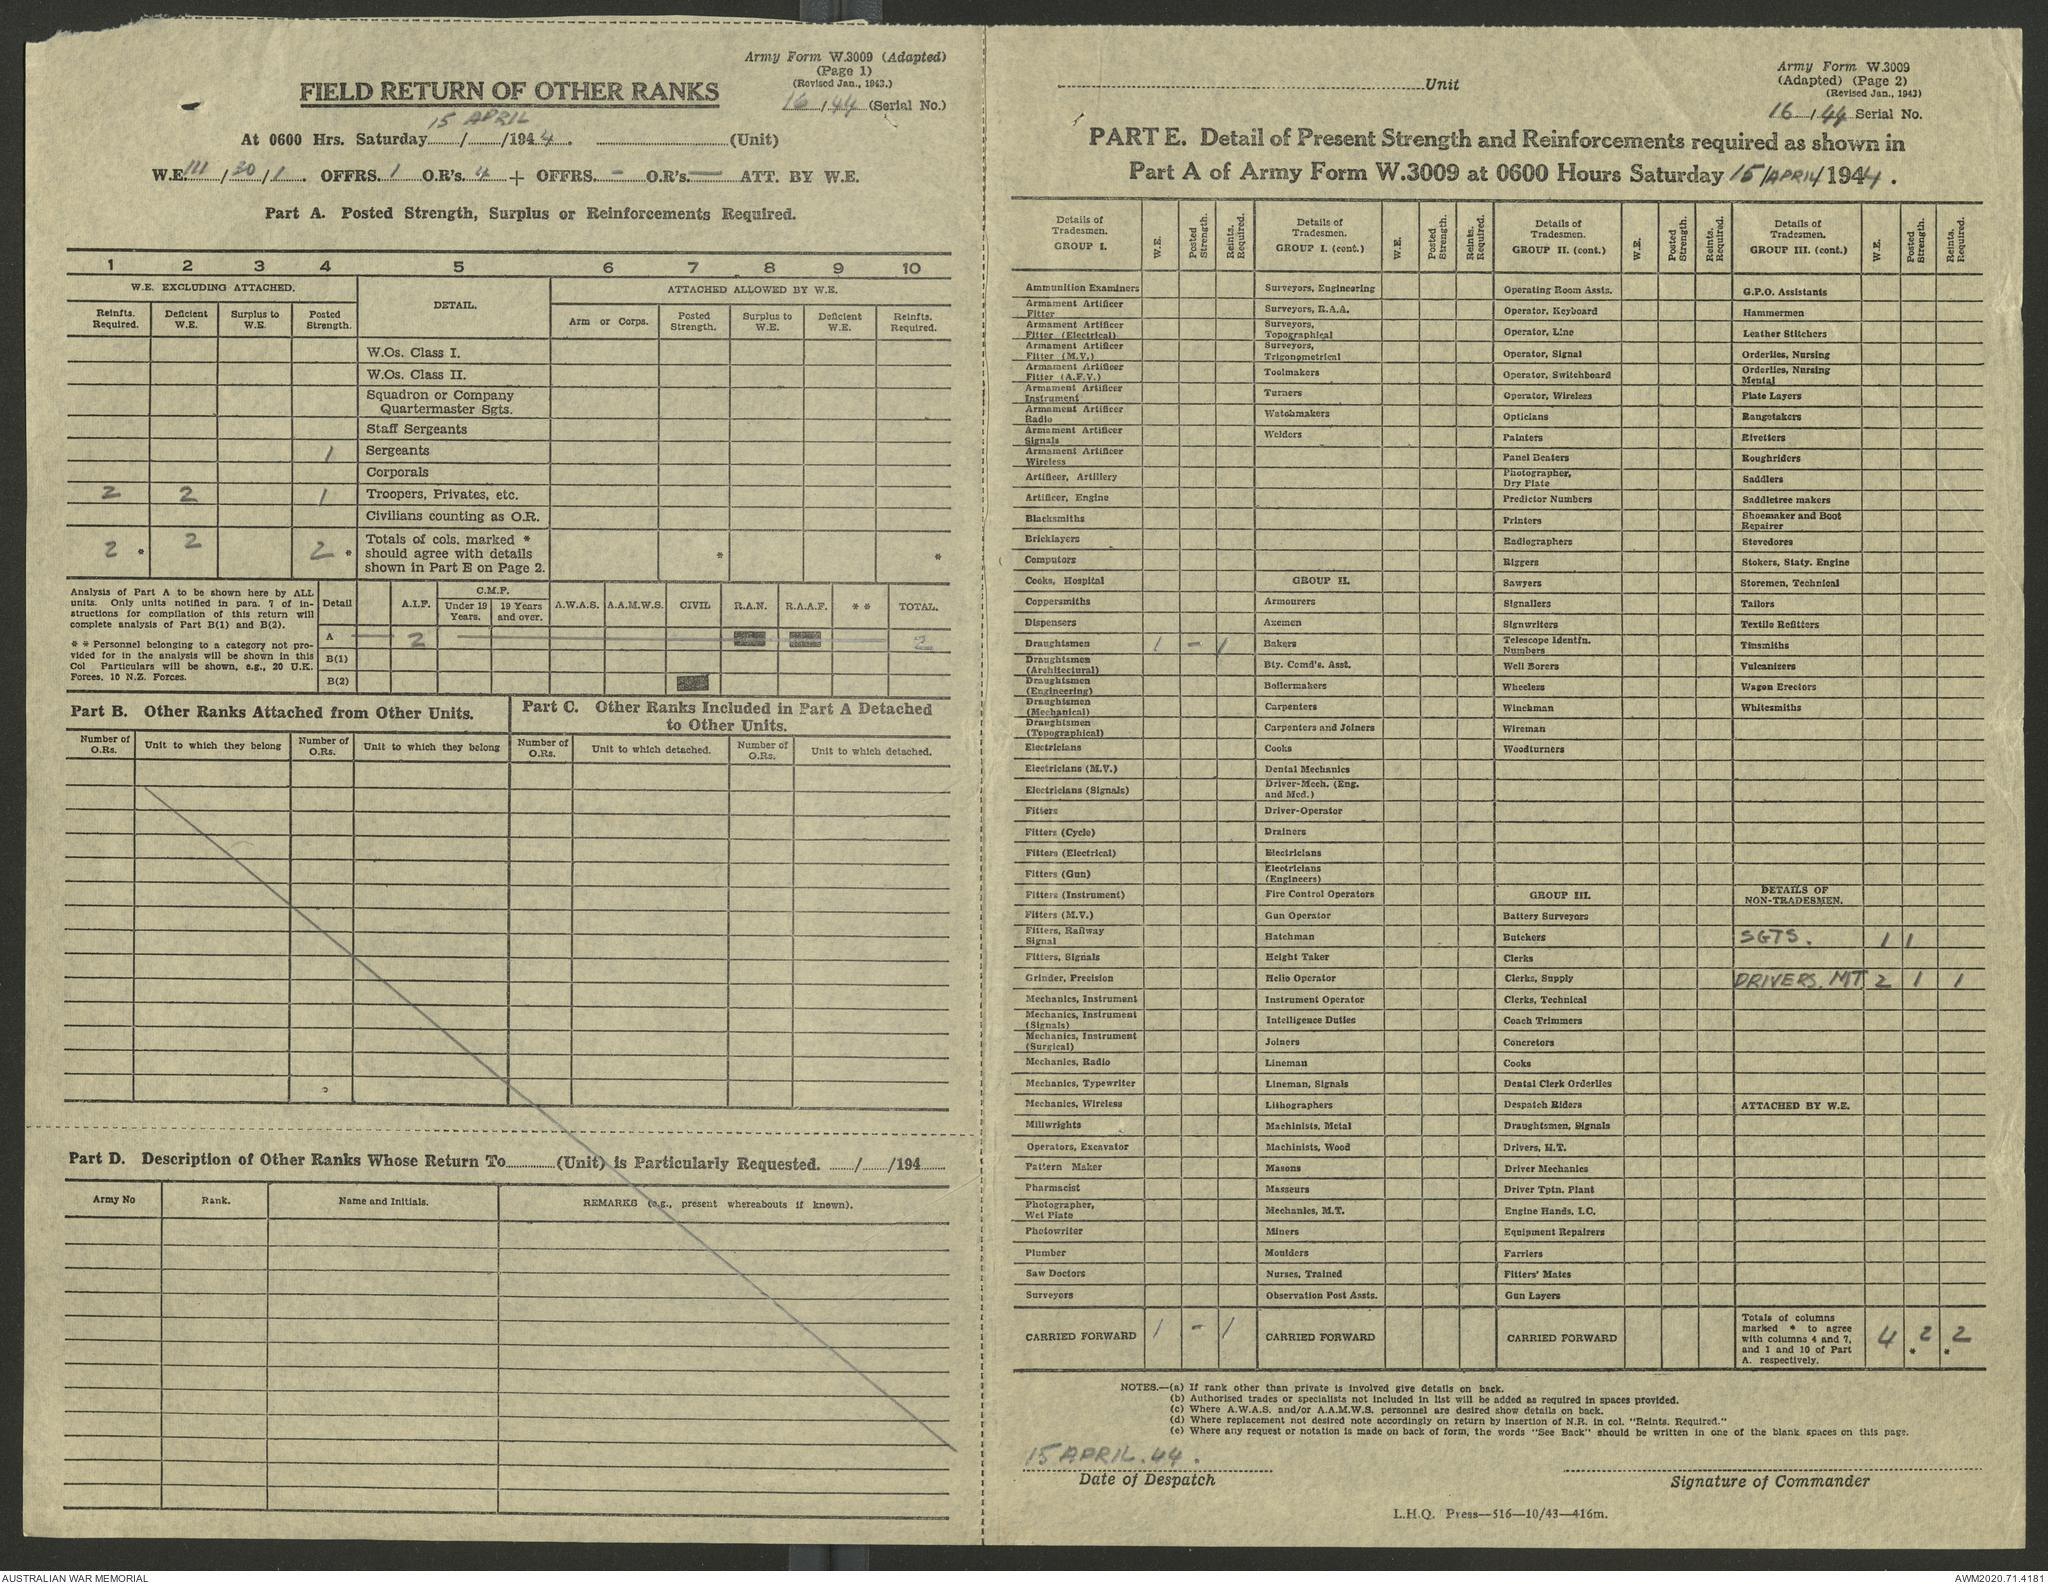 Army Form W.3009 (Adapted)
(Page 1)
(Revised Jan., 1943.)
FIELD RETURN OF OTHER RANKS
16 / 44 (Serial No.)
15 APRIL
At 0600 Hrs. Saturday ....../....../1944. ............ (Unit)
W.E. 111 / 30 / 1 . OFFRS. 1 O.R's. 4 + OFFRS. - O.R's. — ATT. BY W.E.
Part A. Posted Strength, Surplus or Reinforcements Required.
1 2 3 4 5 6 7 8 9 10
W.E. EXCLUDING ATTACHED. DETAIL. ATTACHED ALLOWED BY W.E.
Reinfts. Required. Deficient W.E. Surplus to W.E. Posted Strength. Arm or Corps. Posted Strength. Surplus to W.E. Deficient W.E. Reinfts. Required.
W.Os. Class I.
W.Os. Class II.
Squadron or Company
Quartermaster Sgts.
Staff Sergeants
1 Sergeants
Corporals
2 2 1 Troopers, Privates, etc.
Civilians counting as O.R.
2 * 2 2 * Totals of cols. marked * * *
should agree with details
shown in Part E on Page 2.
Analysis of Part A to be shown here by ALL
units. Only units notified in para. 7 of in-
structions for compilation of this return will
complete analysis of Part B(1) and B(2).
* * Personnel belonging to a category not pro-
vided for in the analysis will be shown in this
Col Particulars will be shown, e.g., 20 U.K.
Forces, 10 N.Z. Forces.
Detail A.I.F. C.M.F. Under 19 Years. 19 Years and over. A.W.A.S. A.A.M.W.S. CIVIL R.A.N. R.A.A.F. * * TOTAL.
A 2 2
B(1)
B(2)
Part B. Other Ranks Attached from Other Units.
Part C. Other Ranks Included in Part A Detached
to Other Units.
Number of O.Rs. Unit to which they belong Number of O.Rs. Unit to which they belong Number of O.Rs. Unit to which detached. Number of O.Rs. Unit to which detached.
Part D. Description of Other Ranks Whose Return To............(Unit) is Particularly Requested. ....../....../194......
Army No Rank. Name and Initials. REMARKS (e.g., present whereabouts if known).
............Unit
Army Form W.3009
(Adapted) (Page 2)
(Revised Jan., 1943)
16 / 44 Serial No.
PART E. Detail of Present Strength and Reinforcements required as shown in
Part A of Army Form W.3009 at 0600 Hours Saturday 15/APRIL/1944.
Details of Tradesmen. GROUP I. W.E. Posted Strength. Reints. Required. Details of Tradesmen. GROUP I. (cont.) W.E. Posted Strength. Reints. Required. Details of Tradesmen. GROUP II. (cont.) W.E. Posted Strength. Reints. Required. Details of Tradesmen. GROUP III. (cont.) W.E. Posted Strength. Reints. Required.
Ammunition Examiners Surveyors, Engineering Operating Room Assts. G.P.O. Assistants
Armament Artificer Fitter Surveyors, R.A.A. Operator, Keyboard Hammermen
Armament Artificer Fitter (Electrical) Surveyors, Topographical Operator, Line Leather Stitchers
Armament Artificer Fitter (M.V.) Surveyors, Trigonometrical Operator, Signal Orderlies, Nursing
Armament Artificer Fitter (A.F.V.) Toolmakers Operator, Switchboard Orderlies, Nursing Mental
Armament Artificer Instrument Turners Operator, Wireless Plate Layers
Armament Artificer Radio Watchmakers Opticians Rangetakers
Armament Artificer Signals Welders Painters Rivetters
Armament Artificer Wireless Panel Beaters Roughriders
Artificer, Artillery Photographer, Dry Plate Saddlers
Artificer, Engine Predictor Numbers Saddletree makers
Blacksmiths Printers Shoemaker and Boot Repairer
Bricklayers Radiographers Stevedores
Computors Riggers Stokers, Staty. Engine
Cooks, Hospital GROUP II. Sawyers Storemen, Technical
Coppersmiths Armourers Signallers Tailors
Dispensers Axemen Signwriters Textile Refitters
Draughtsmen 1 - 1 Bakers Telescope Identfn. Numbers Tinsmiths
Draughtsmen (Architectural) Bty. Comd's. Asst. Well Borers Vulcanizers
Draughtsmen (Engineering) Boilermakers Wheelers Wagon Erectors
Draughtsmen (Mechanical) Carpenters Winchman Whitesmiths
Draughtsmen (Topographical) Carpenters and Joiners Wireman
Electricians Cooks Woodturners
Electricians (M.V.) Dental Mechanics
Electricians (Signals) Driver-Mech. (Eng. and Med.)
Fitters Driver-Operator
Fitters (Cycle) Drainers
Fitters (Electrical) Electricians
Fitters (Gun) Electricians (Engineers)
Fitters (Instrument) Fire Control Operators GROUP III. DETAILS OF NON-TRADESMEN.
Fitters (M.V.) Gun Operator Battery Surveyors
Fitters, Railway Signal Hatchman Butchers SGTS. 1 1
Fitters, Signals Height Taker Clerks
Grinder, Precision Helio Operator Clerks, Supply DRIVERS. MT 2 1 1
Mechanics, Instrument Instrument Operator Clerks, Technical
Mechanics, Instrument (Signals) Intelligence Duties Coach Trimmers
Mechanics, Instrument (Surgical) Joiners Concretors
Mechanics, Radio Lineman Cooks
Mechanics, Typewriter Lineman, Signals Dental Clerk Orderlies
Mechanics, Wireless Lithographers Despatch Riders ATTACHED BY W.E.
Millwrights Machinists, Metal Draughtsmen, Signals
Operators, Excavator Machinists, Wood Drivers, H.T.
Pattern Maker Masons Driver Mechanics
Pharmacist Masseurs Driver Tptn. Plant
Photographer, Wet Plate Mechanics, M.T. Engine Hands, I.C.
Photowriter Miners Equipment Repairers
Plumber Moulders Farriers
Saw Doctors Nurses, Trained Fitters' Mates
Surveyors Observation Post Assts. Gun Layers
CARRIED FORWARD 1 - 1 CARRIED FORWARD CARRIED FORWARD Totals of columns marked * to agree with columns 4 and 7, and 1 and 10 of Part A. respectively. 4 2 * 2 *
NOTES.—(a) If rank other than private is involved give details on back.
(b) Authorised trades or specialists not included in list will be added as required in spaces provided.
(c) Where A.W.A.S. and/or A.A.M.W.S. personnel are desired show details on back.
(d) Where replacement not desired note accordingly on return by insertion of N.R. in col. "Reints. Required."
(e) Where any request or notation is made on back of form, the words "See Back" should be written in one of the blank spaces on this page.
15 APRIL. 44.
Date of Despatch
Signature of Commander
L.H.Q. Press—516—10/43—416m.
AUSTRALIAN WAR MEMORIAL
AWM2020.71.4181